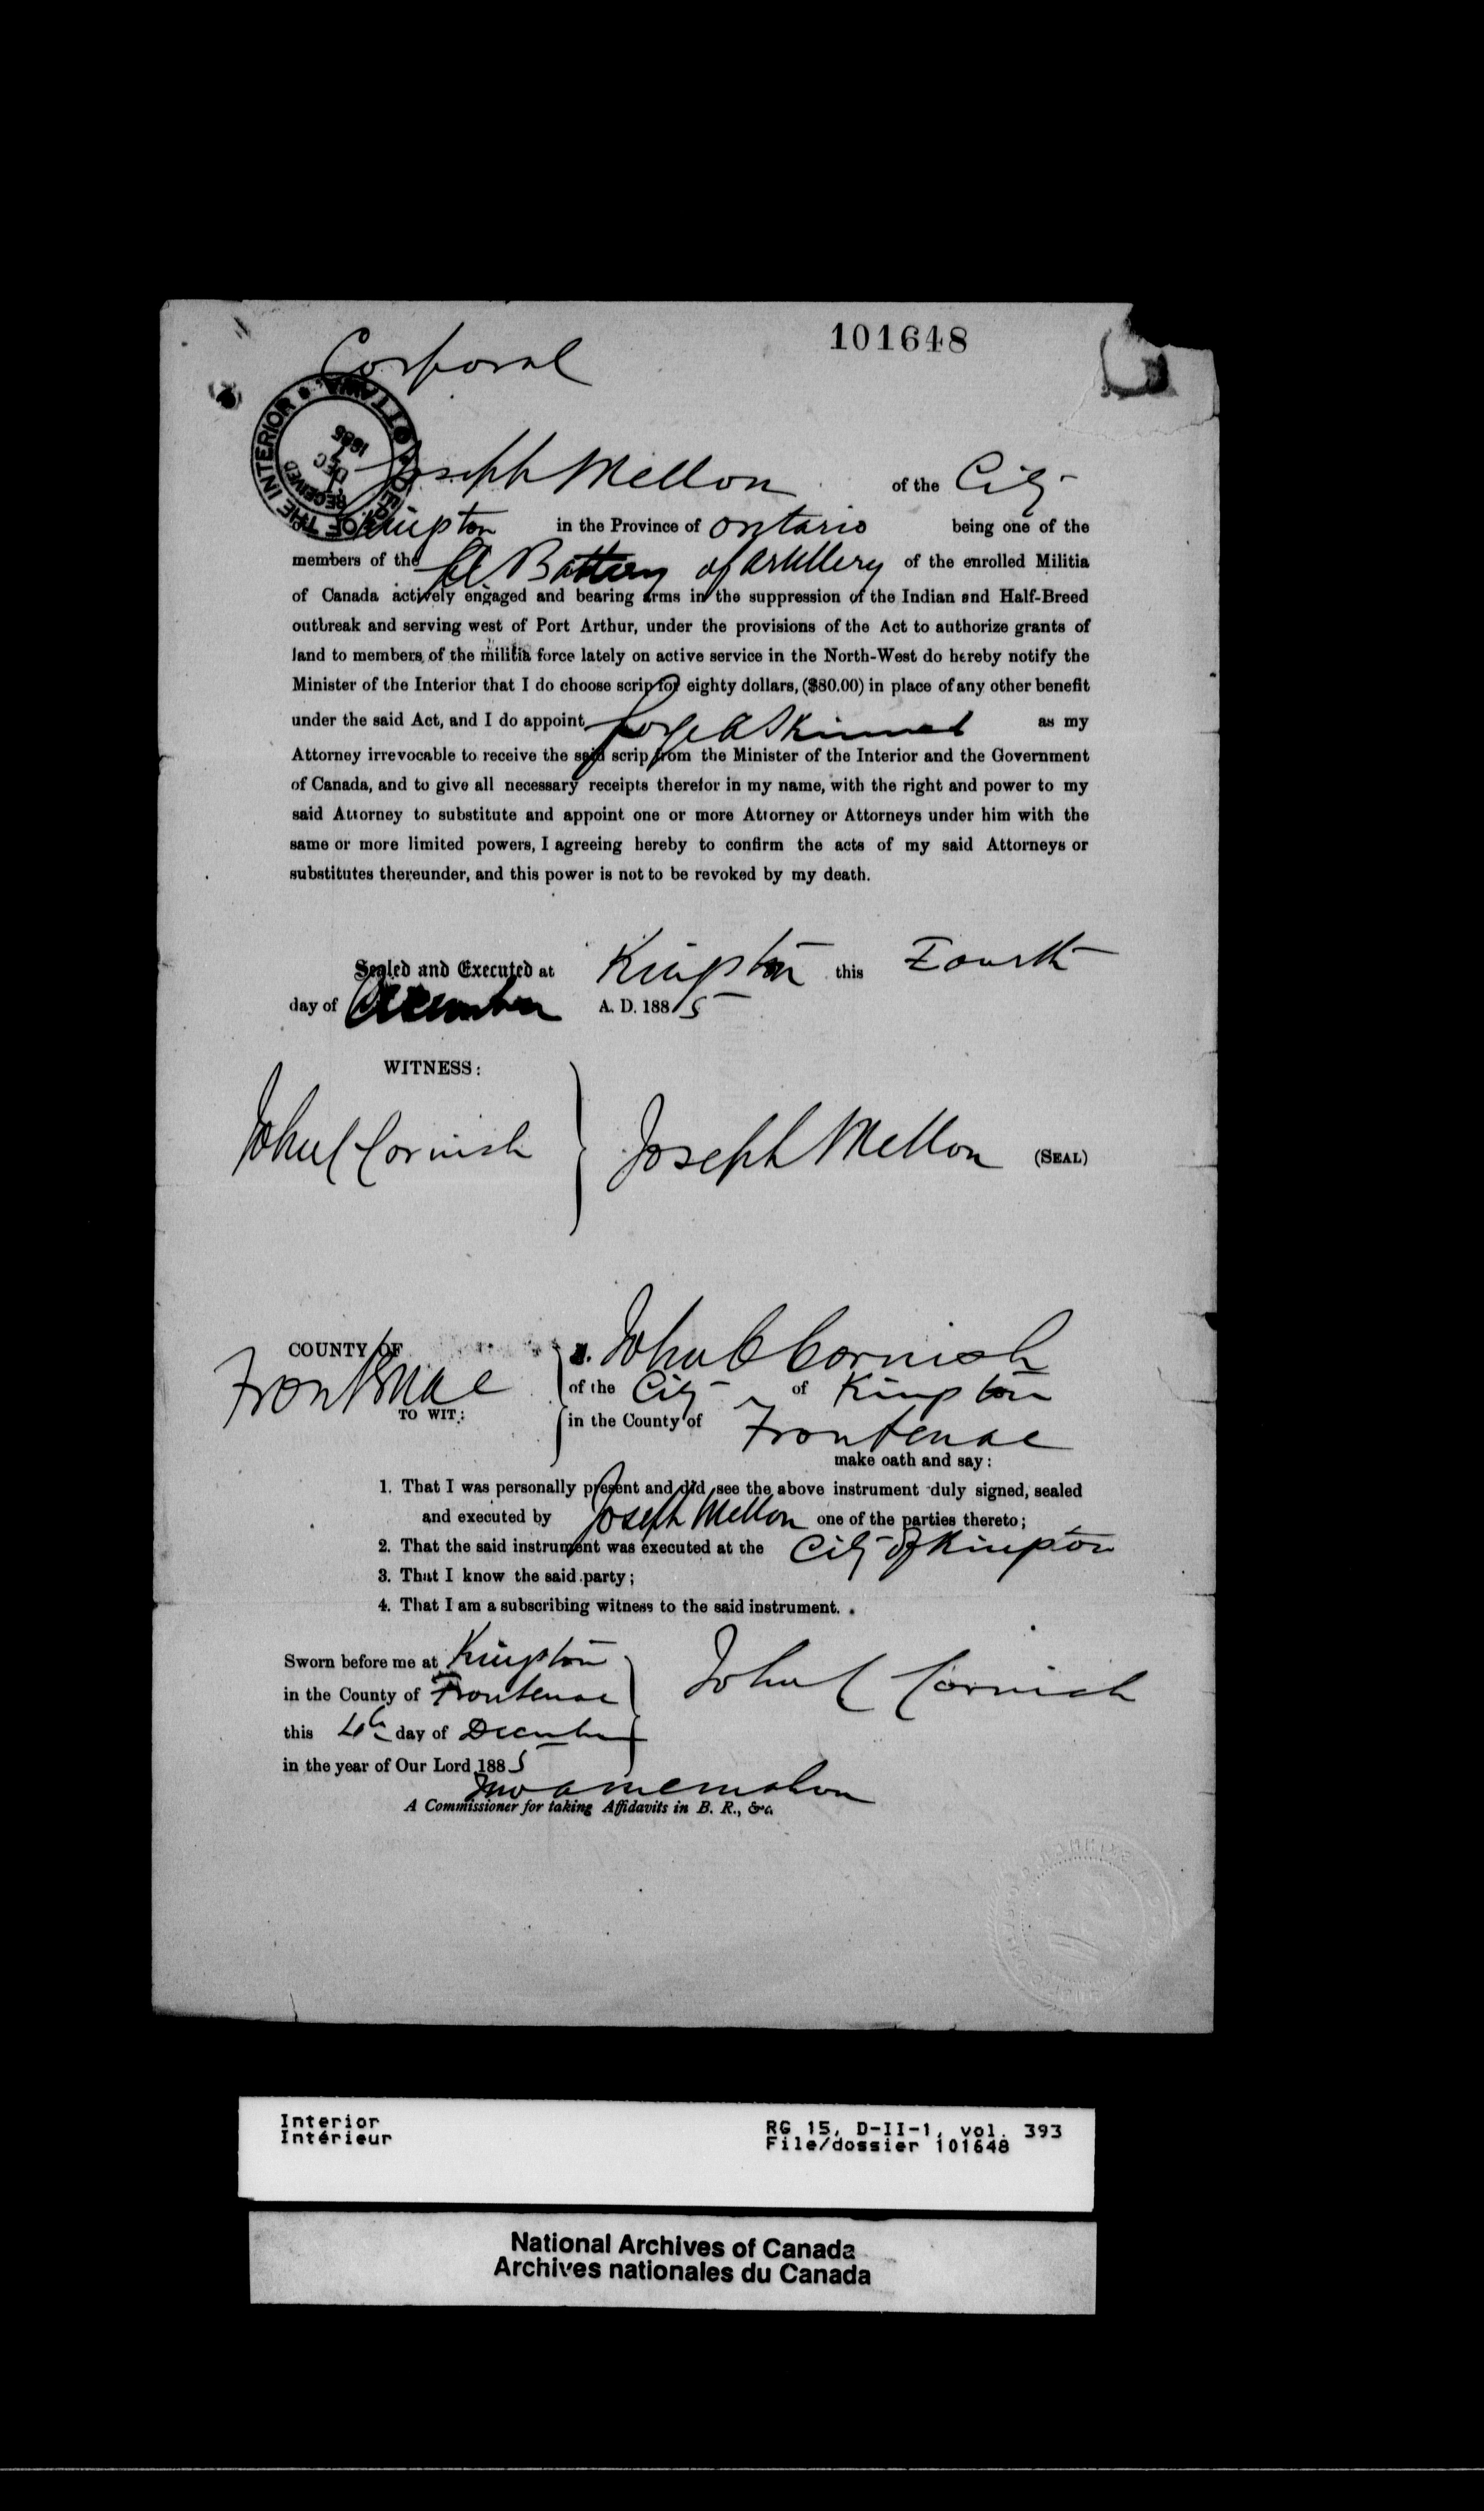 101648
Corporal
DEPT. OF THE INTERIOR OTTAWA
RECEIVED
DEC
1885
Joseph Mellon of the City
Kingston in the Province of Ontario being one of the
members of the A Battery of Artillery of the enrolled Militia
of Canada actively engaged and bearing arms in the suppression of the Indian and Half-Breed
outbreak and serving west of Port Arthur, under the provisions of the Act to authorize grants of
land to members of the militia force lately on active service in the North-West do hereby notify the
Minister of the Interior that I do choose scrip for eighty dollars, ($80.00) in place of any other benefit
under the said Act, and I do appoint George A Skinner as my
Attorney irrevocable to receive the said scrip from the Minister of the Interior and the Government
of Canada, and to give all necessary receipts therefor in my name, with the right and power to my
said Attorney to substitute and appoint one or more Attorney or Attorneys under him with the
same or more limited powers, I agreeing hereby to confirm the acts of my said Attorneys or
substitutes thereunder, and this power is not to be revoked by my death.
Sealed and Executed at Kingston this Fourth
day of December A. D. 1885
WITNESS:
John C Cornish Joseph Mellon (SEAL)
COUNTY OF I. John C Cornish
Frontenac of the City of Kingston
TO WIT: in the County of Frontenac
make oath and say:
1. That I was personally present and did see the above instrument duly signed, sealed
and executed by Joseph Mellon one of the parties thereto;
2. That the said instrument was executed at the City of Kingston
3. That I know the said party;
4. That I am a subscribing witness to the said instrument.
Sworn before me at Kingston John C Cornish
in the County of Frontenac
this 4th day of December
in the year of Our Lord 1885
A Commissioner for taking Affidavits in B. R., &c.
Interior RG 15, D-II-1, vol. 393
Intérieur File/dossier 101648
National Archives of Canada
Archives nationales du Canada